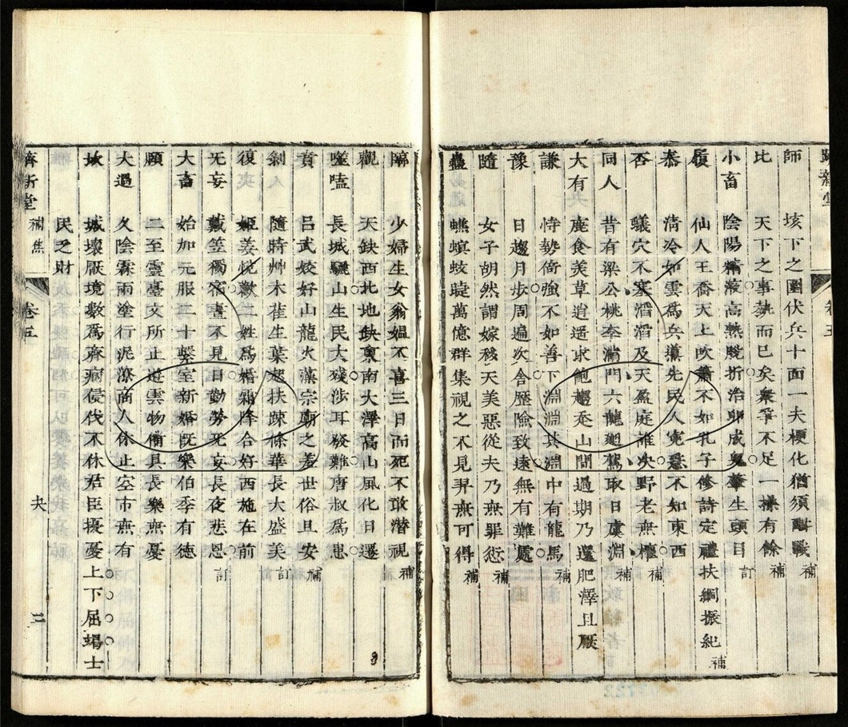 師 垓下之圍伏兵十面一夫梗化猶須 戰補
比 天下之事 而已矣衆 不足一 有餘補
小畜 陰陽精液高熱脫折治卵成 生頭目訂
履 仙人王喬天上吹簫不如孔子修詩定禮扶綱振紀補
泰 清冷如雲爲兵 先民人 不知東西
否 蟻穴不塞滔滔及天盈庭誰決野老無 補
同人 昔有梁公桃李滿門六龍 駕取日虞淵補
大有 鹿食美草逍遥求飽 山間過期乃還肥澤且厭
謙 恃勢倚強不如善下淵淵其淵中有龍馬補
豫 日趨月步周遍次舍歷險致遠無有難處
隨 女子胡然謂嫁 天美惡從夫乃無罪愆補
蠱 蠛蠓蚊 萬億群集視之不見 無可得補
臨 少婦生女翁媼不喜三日而死不敢潛視補
觀 天缺西北地缺東南大澤高山風化日遷
噬嗑 長城驪山生民大殘涉耳發難唐叔爲患
賁 呂武姣好山龍火藻宗廟之羞世俗且安補
剝 隨時艸木 生葉 扶疎條華長大盛美訂
復 姬姜悅 二姓爲婚 降合好西施在前
无妄 戴笠獨宿晝不見日勤勞 長夜悲思訂
大畜 始加元服二十 室新婚既樂伯季有德
頤 二至靈臺文所止遊雲物備具長樂無憂
大過 久陰霖雨塗行泥潦商人休止空市無有
坎 城壞厭境數爲齊病侵伐不休君臣擾憂上下屈竭士
民乏財
濟新堂 補焦 卷五 夬 三